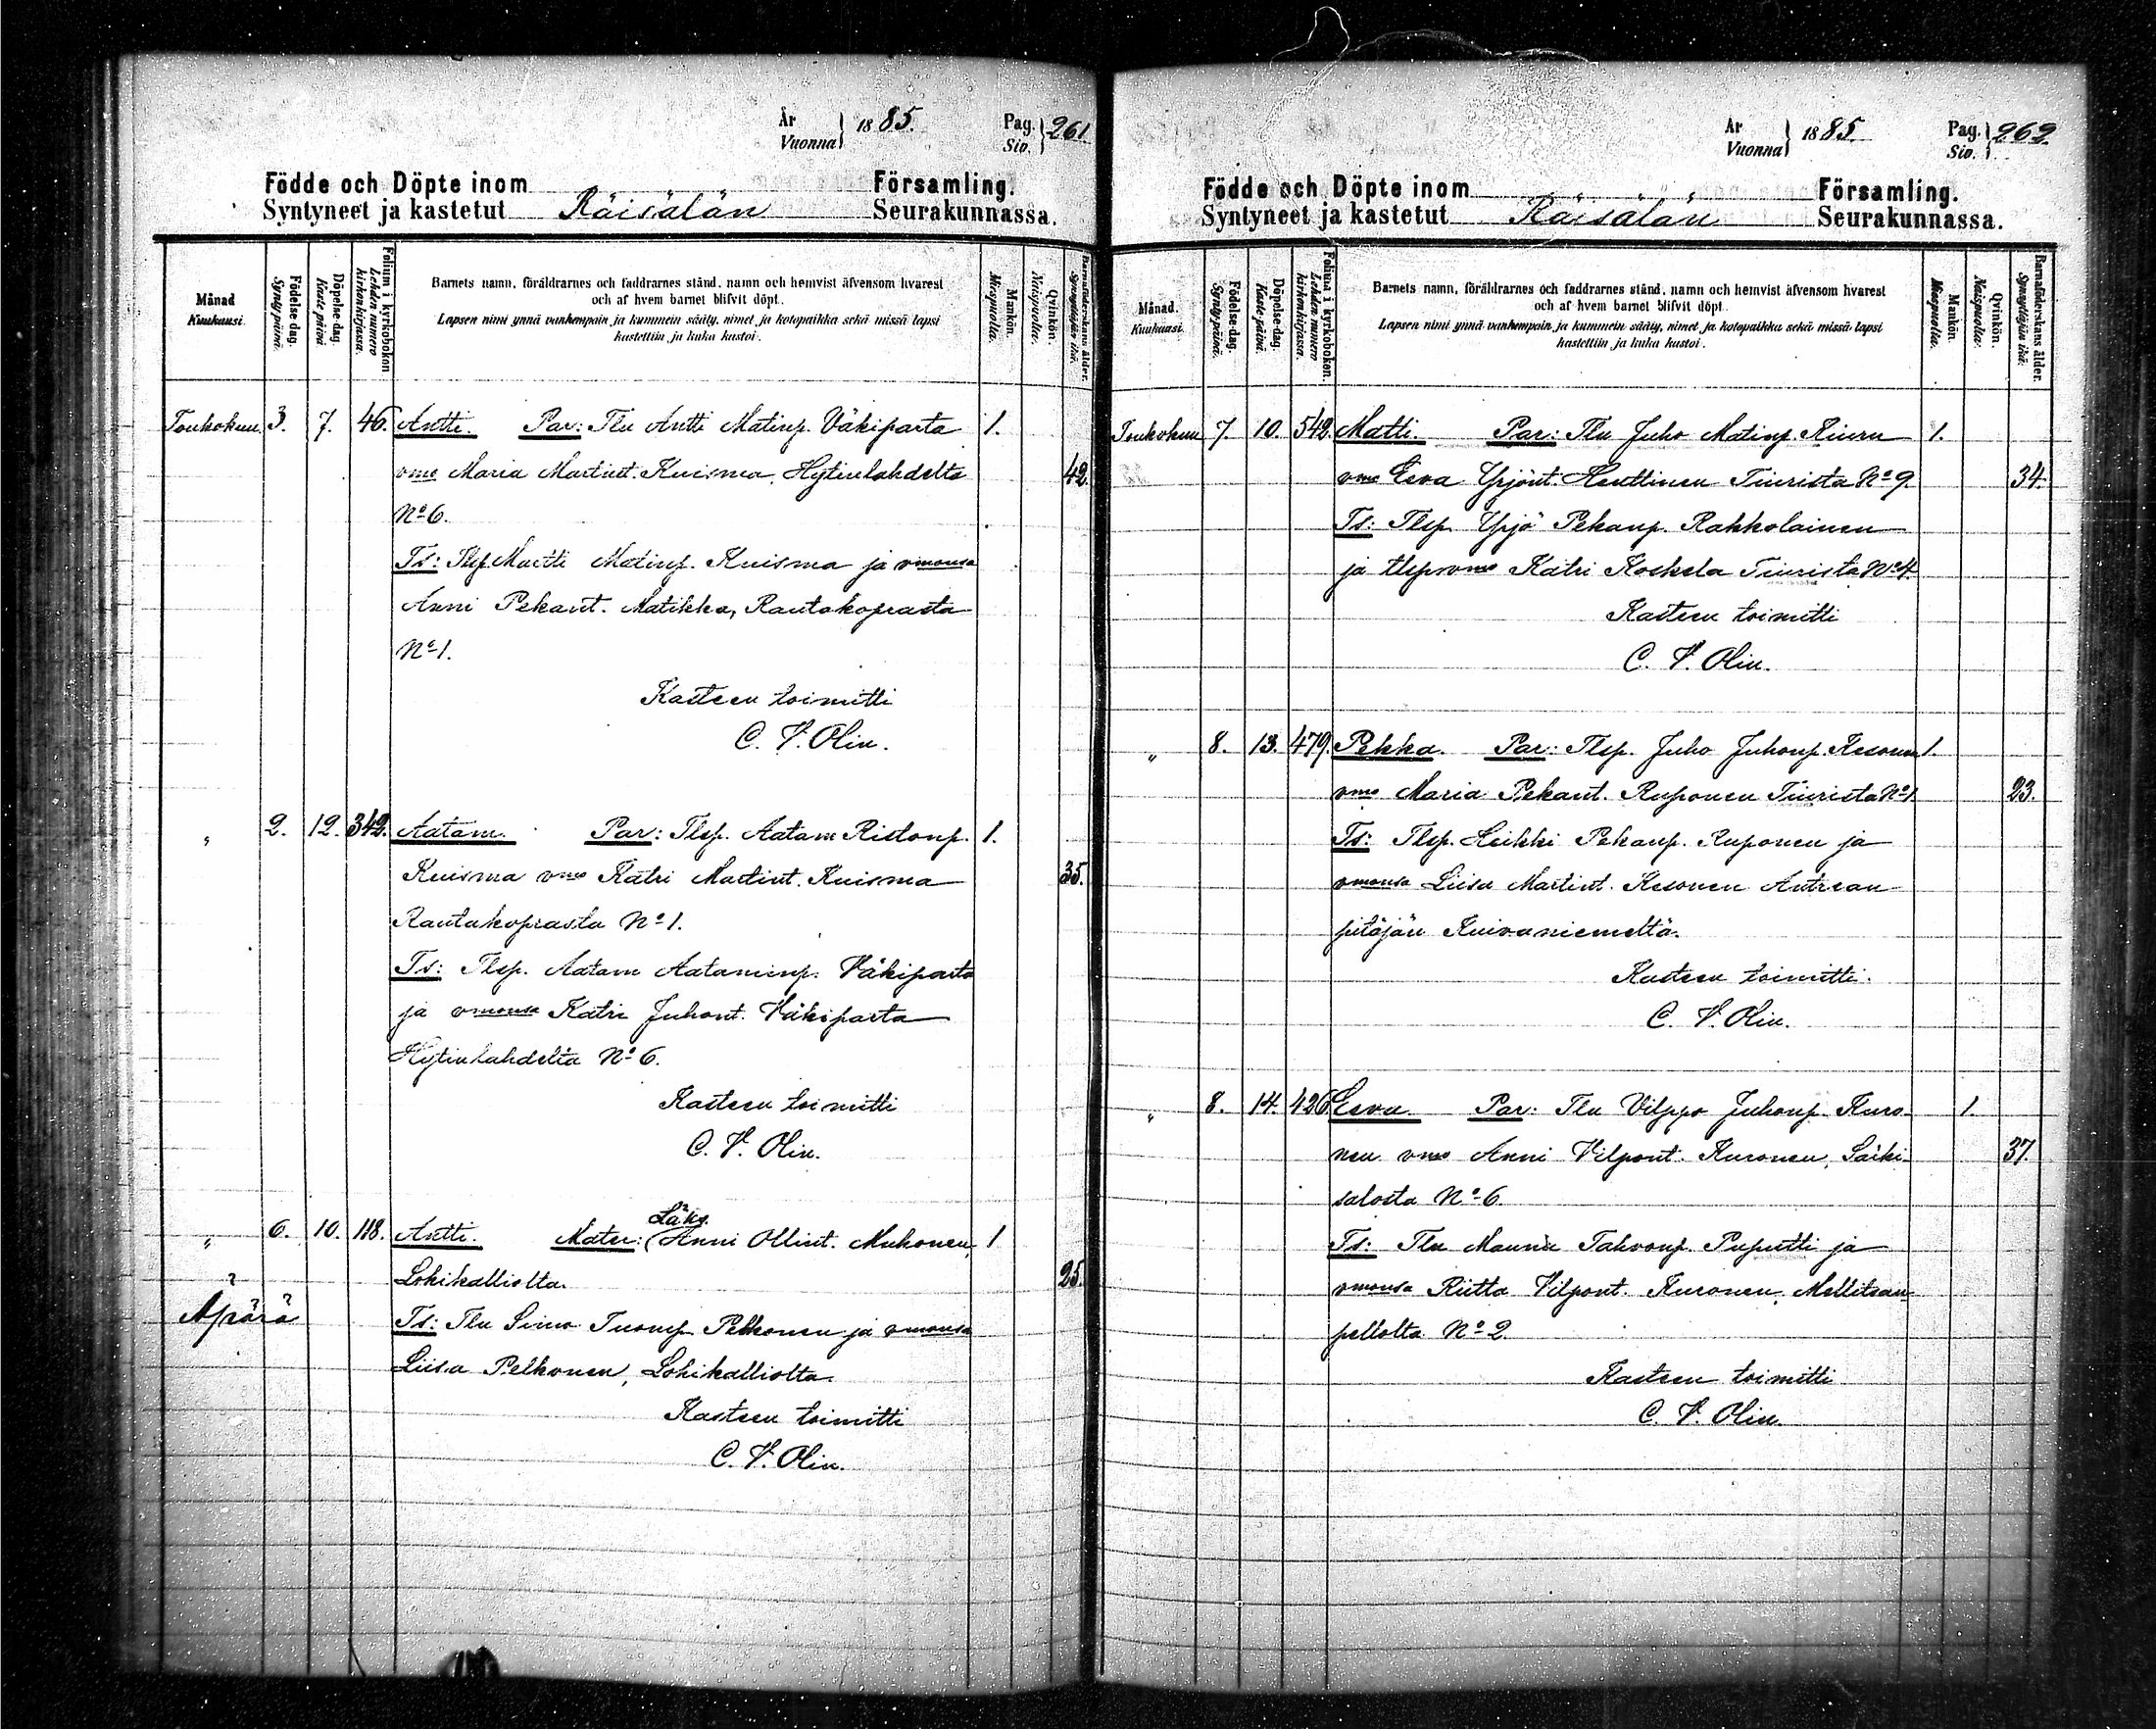 År
Vuonna } 1885.
Pag.
Siv. } 261
Födde och Döpte inom Församling.
Syntyneet ja kastetut Räisälän Seurakunnassa.
Månad
Kuukausi.
Födelse dag.
Syntypäivä.
Döpelse-dag.
Kaste-päivä
Folium i kyrkoboken
Lehden numero
kirkonkirjassa.
Barnets namn, föräldrarnes och faddrarnes stånd, namn och hemvist äfvensom hvarest
och af hvem barnet blifvit döpt.
Lapsen nimi ynnä vanhempain ja kummein sääty, nimet ja kotopaikka sekä missä lapsi
kastettiin ja kuka kastoi.
Mankön.
Miespuolta.
Qvinkön.
Naispuolta.
Barnaföderskans ålder.
Synnyttäjän ikä.
Toukokuu 3. 7. 46. Antti. Par: Tlu Antti Matinp. Väkiparta 1.
vmo Maria Martint. Kuisma, Hytinlahdelta 42.
No 6.
Ts: Tlsp. Martti Matinp. Kuisma ja vmonsa
Anni Pekant. Matikka, Rautakoprasta
No 1.
Kasteen toimitti
C. V. Olin.
" 2. 12. 342. Aatam. Par: Tlsp. Aatam Ristonp. 1.
Kuisma vmo Katri Martint. Kuisma 35.
Rautakoprasta No 1.
Ts: Tlsp. Aatam Aataminp. Väkiparta
ja vmonsa Katri Juhont. Väkiparta
Hytinlahdelta No 6.
Kasteen toimitti
C. V. Olin.
Läks.
" 6. 10. 118. Antti. Mater: (Anni Ollint. Mukonen, 1
Lohikalliolta. 25.
Äpärä Ts: Tlu Simo Tuomp. Pelkonen ja vmonsa
Liisa Pelkonen, Lohikalliolta.
Kasteen toimitti
C. V. Olin.
År
Vuonna } 1885.
Pag.
Siv. } 262.
Födde och Döpte inom Församling.
Syntyneet ja kastetut Räisälän Seurakunnassa.
Månad.
Kuukausi.
Födelse-dag.
Syntypäivä.
Döpelse-dag.
Kaste-päivä.
Folium i kyrkoboken.
Lehden numero
kirkonkirjassa.
Barnets namn, föräldrarnes och faddrarnes stånd, namn och hemvist äfvensom hvarest
och af hvem barnet blifvit döpt.
Lapsen nimi ynnä vanhempain ja kummein sääty, nimet ja kotopaikka sekä missä lapsi
kastettiin ja kuka kastoi.
Mankön.
Miespuolta.
Qvinkön.
Naispuolta.
Barnaföderskans ålder.
Synnyttäjän ikä.
Toukokuu 7. 10. 542. Matti. Par: Tlu Juho Matinp. Kiuru 1.
vmo Eeva Yrjönt. Henttinen Tiurista No 9. 34.
Ts: Tlsp Yrjö Pekanp. Rakkolainen
ja tlspvmo Katri Koskela Tiurista No 4.
Kasteen toimitti
C. V. Olin.
" 8. 13. 479. Pekka. Par: Tlsp. Juho Juhonp. Kesonen 1.
vmo Maria Pekant. Ruponen Tiurista No 1. 23.
Ts: Tlsp. Heikki Pekanp. Ruponen ja
vmonsa Liisa Martint. Kesonen Antrean
pitäjän Kuivaniemeltä.
Kasteen toimitti.
C. V. Olin.
" 8. 14. 426. Eeva. Par: Tlu Vilppo Juhonp. Kuro- 1.
nen vmo Anni Vilpont. Kuronen, Särki- 37.
salosta No 6.
Ts: Tlu Maunu Tahvonp. Puputti ja
vmonsa Riitta Vilpont. Kuronen, Mellitsan
pellolta No 2.
Kasteen toimitti
C. V. Olin.